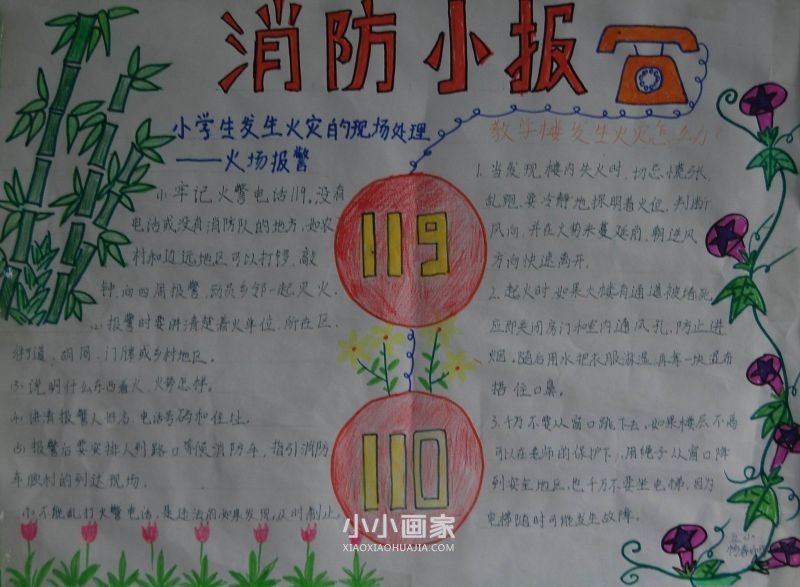 消防小报
小学生发生火灾的现场处理
——火场报警
牢记火警电话119。没有
电话或没有消防队的地方，如农
村和边远地区可以打锣、敲
钟，向四周报警，动员乡邻一起灭火。
报警时要讲清楚着火单位，所在区、
街道、胡同、门牌或乡村地区。
(3)说明什么东西着火，火势怎样。
讲清报警人姓名、电话号码和住址。
(5)报警后要安排人到路口等候消防车，指引消防
车顺利的到达现场。
不能乱打火警电话，是违法的如果发现，及时制止。
119
110
教学楼发生火灾怎么办
1.当发现楼内失火时，切忌慌张、
乱跑，要冷静地探明着火位，判断
风向，并在火势未蔓延前，朝逆风
方向快速离开。
2.起火时，如果大楼有通道被堵死，
应即关闭房门和室内通风孔，防止进
烟。随后用水把衣服淋湿，再拿一块湿布
捂住口鼻。
3.千万不要从窗口跳下去，如果楼层不高
可以在老师的保护下，用绳子从窗口降
到安全地区，也千万不要坐电梯，因为
电梯随时可能发生故障。
小小画家
XIAOXIAOHUAJIA.COM